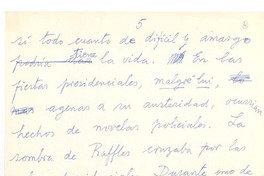 5
sí todo cuanto de difícil y amargo
podría tiene la vida. En las
fiestas presidenciales, malgré lui,
agenas a su austeridad, ocurrían
hechos de novelas policiales. La
sombra de Raffles cruzaba por las
Durante uno de